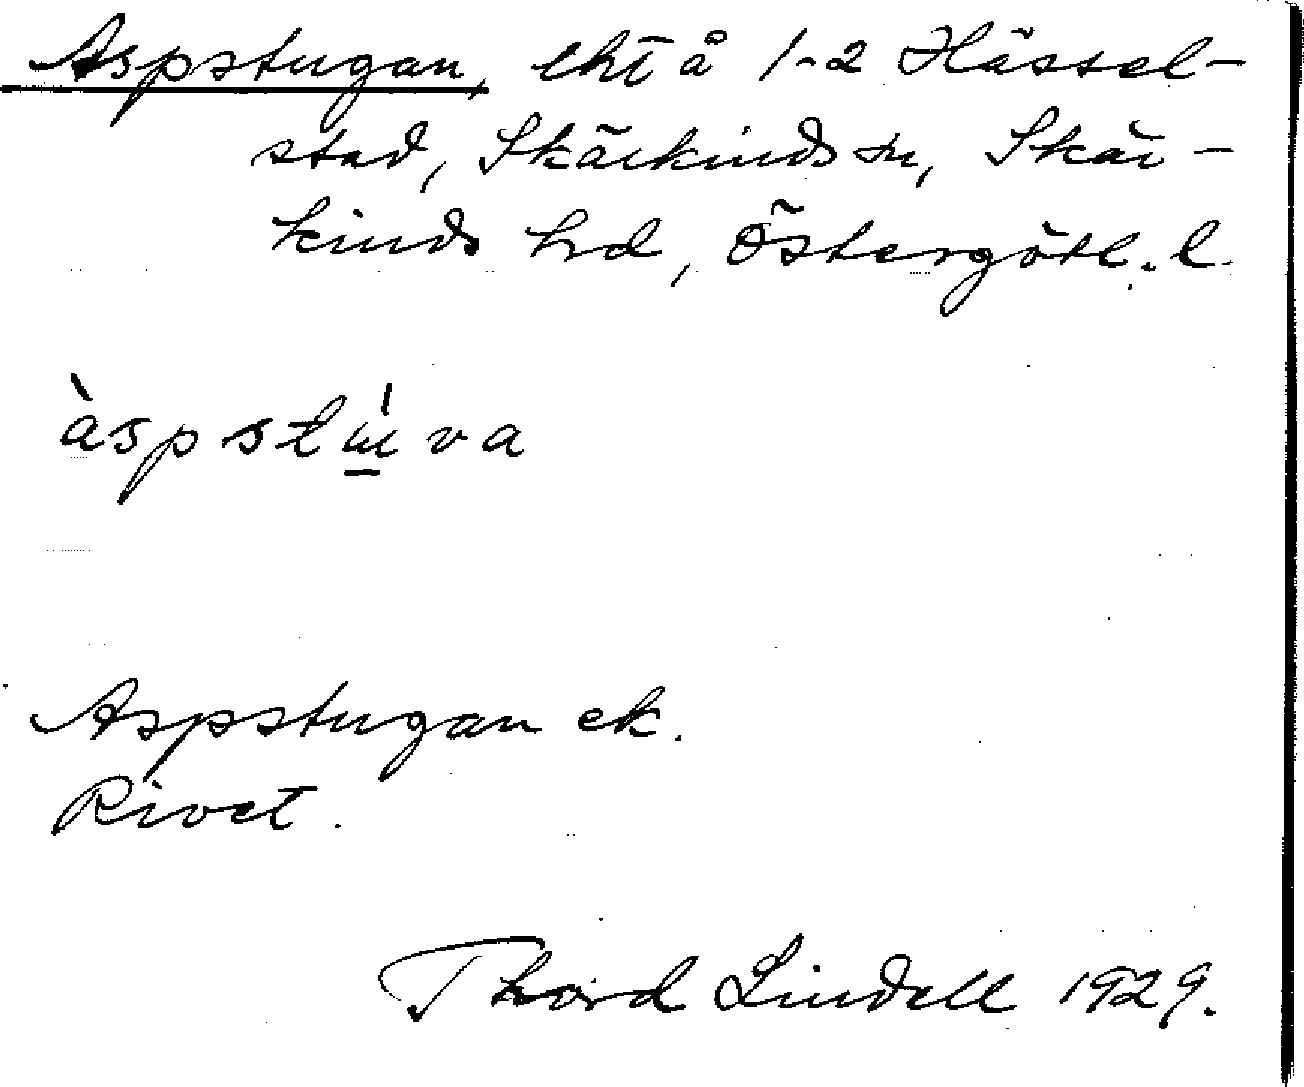 Aspstugan, lht å 1-2 Hässel-
stad, Skärkinds sn, Skär-
kinds hd, Östergötl. l.
àspstɯ́va
Aspstugan ek.
Rivet.
Thord Lindell 1929.